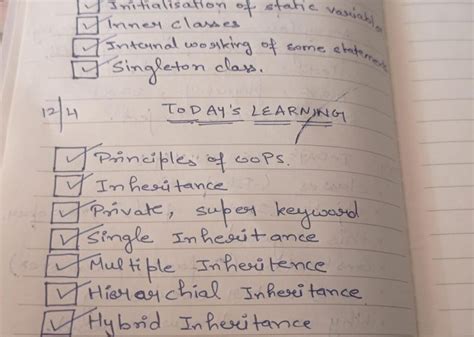 Initialisation of static variable
Inner classes
Internal working of some statement
Singleton class.
12/4 TODAY'S LEARNING
Principles of OOPS.
Inheritance
Private, super keyword
Single Inheritance
Multiple Inheritence
Hierarchial Inheritance
Hybrid Inheritance